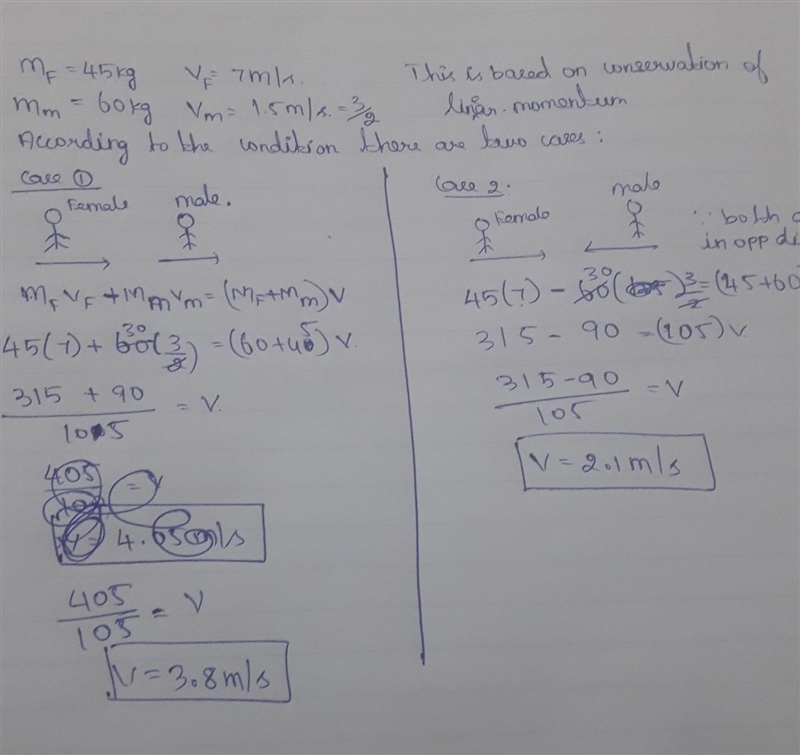 m_F = 45kg V_F = 7m/s. This is based on conservation of
m_m = 60kg V_m = 1.5m/s. = 3/2 linear momentum
According to the condition there are two cases:
Case ①
Female male.
m_F V_F + m_m V_m = (m_F + m_m) V
45(7) + 60(3/2) = (60+45) V.
30
315 + 90 / 105 = V.
405 = V
V = 4.05m/s
405/105 = V
V = 3.8m/s
Case 2. male
Female ∵ both
in opp di
45(7) - 60 ( ) 3/2 = (45+60
30
315 - 90 = (105) V.
315-90 / 105 = V
V = 2.1m/s